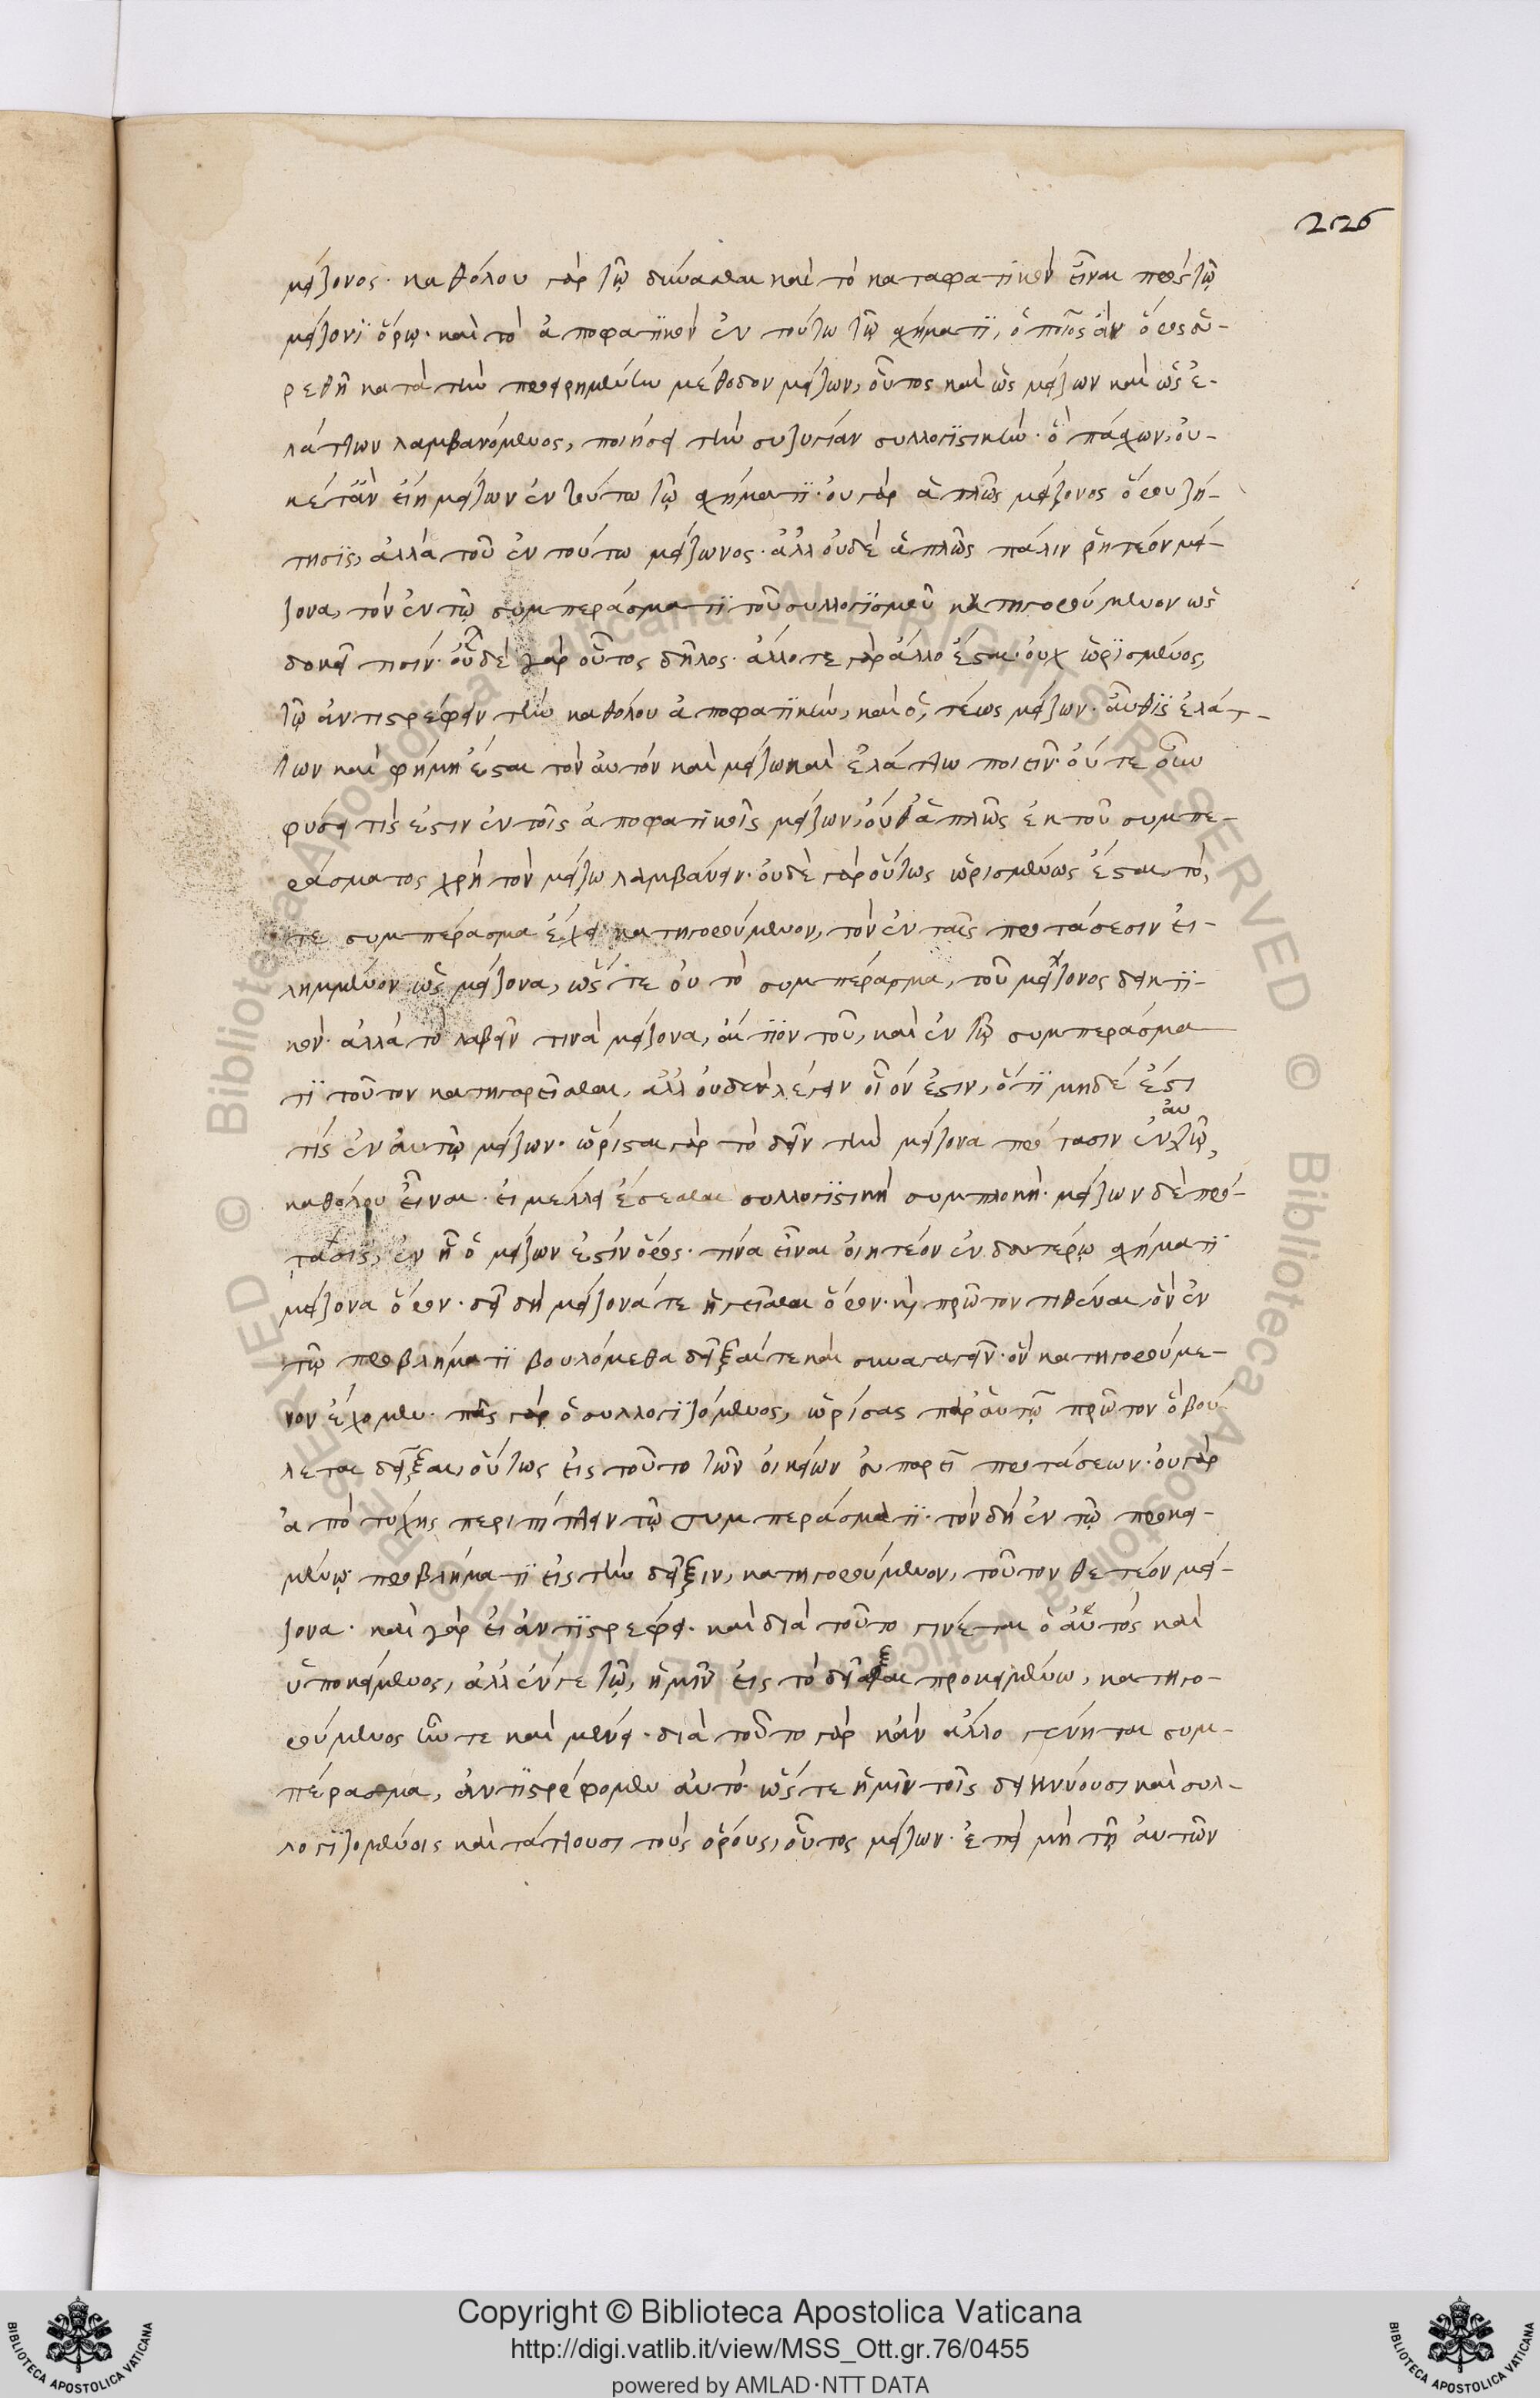 226
μείζονος· καθόλου γὰρ τῶ δύνασθαι καὶ τὸ καταφατϊκὸν εἶναι πρὸς τῶ
μείζονϊ ὅρω· καὶ τὸ ἀποφατϊκὸν ἐν τούτω τῶ σχήματϊ, ὁποῖος ἂν ὅρος εὑ-
ρεθῆ κατὰ τὴν προειρημένην μέθοδον μείζων, οὗτος καὶ ὡς μείζων καὶ ὡς ἐ-
λάττων λαμβανόμενος, ποιήσει τὴν συζυγίαν συλλογϊστικήν· ὁ πάσχων, οὐ-
κέτ' ἂν εἴη μείζων ἐν τούτω τῶ σχήματϊ· οὐ γὰρ ἁπλῶς μείζονος ὅρου ζή-
τησϊς, ἀλλὰ τοῦ ἐν τούτω μείζωνος· ἀλλ οὐδὲ ἁπλῶς πάλιν ῥητέον μεί-
ζονα, τὸν ἐν τῶ συμπεράσματϊ τοῦ συλλογϊσμοῦ κατηγορούμενον ὡς
δοκεῖ τισίν· οὐδὲ γὰρ οὗτος δῆλος· ἄλλοτε γὰρ ἄλλο ἔσται· οὐχ ὡρϊσμένος,
τῶ ἀντιστρέφειν τὴν καθόλου ἀποφατϊκήν, καὶ ὁ, τέως μείζων· αὖθϊς ἐλάτ-
των καὶ φήμη ἔσται τὸν αὐτὸν καὶ μείζω καὶ ἐλάττω ποιεῖν· οὔτε οὖν
φύσει τίς ἐστιν ἐν τοῖς ἀποφατϊκοῖς μείζων, οὔθ ἁπλῶς ἐκ τοῦ συμπε-
ράσματος χρὴ τὸν μείζω λαμβάνειν· οὐδὲ γὰρ οὕτως ὡρισμένως ἔσται, τό,
τε συμπέρασμα ἔχει κατηγορούμενον, τὸν ἐν ταῖς προτάσεσιν εἰ-
λημμένον ὡς μείζονα, ὥστε οὐ τὸ συμπέρασμα, τοῦ μείζονος δεικτϊ-
κόν· ἀλλὰ τὸ λαβεῖν τινὰ μείζονα, αἴτϊον τοῦ, καὶ ἐν τῶ συμπεράσμα
τϊ τοῦτον κατηγορεῖσθαι, ἀλλ οὐδὲν λέγειν οἷόν ἐστιν, ὅτϊ μηδέ ἐστι
τίς ἐν αὐτῶ μείζων· ὥρισται γὰρ τὸ δεῖν τὴν μείζονα πρότασιν ἐν αὐτῶ,
καθόλου εἶναι· εἰ μέλλει ἔσεσθαι συλλογϊστικὴ συμπλοκή· μείζων δὲ πρό-
τασις, ἐν ἧ ὁ μείζων ἐστὶν ὅρος· τίνα εἶναι οἰητέον ἐν δευτέρω σχήματϊ
μείζονα ὅρον· δεῖ δὴ μείζονά τε ἡγεῖσθαι ὅρον· κ πρῶτον τιθέναι, ὃν ἐν
τῶ προβλήματϊ βουλόμεθα δεῖξαί τε καὶ συναγαγεῖν· ὃν κατηγορούμε-
νον ἔχομεν· πᾶς γὰρ ὁ συλλογϊζόμενος, ὡρίσας παρ αὐτῶ πρῶτον ὃ βού
λεται δεῖξαι, οὕτως εἰς τοῦτο τῶν οἰκείων εὐπορεῖ προτάσεων· οὐ γὰρ
ἀπὸ τύχης περιπίπτει τῶ συμπεράσματϊ· τὸν δὴ ἐν τῶ προκει-
μένω προβλήματϊ εἰς τὴν δεῖξιν, κατηγορούμενον, τοῦτον θετέον μεί-
ζονα· καὶ γὰρ εἰ ἀντϊστρέφει· καὶ διὰ τοῦτο γίνεται ὁ αὐτὸς καὶ
ὑποκείμενος, ἀλλ ἔν γε τῶ, ἡμῖν εἰς τὸ δεῖξαι προκειμένω, κατηγο-
ρούμενος ἦν τε καὶ μένει· διὰ τοῦτο γὰρ κἂν ἄλλο γένηται συμ-
πέρασμα, ἀντϊστρέφομεν αὐτό· ὥστε ἡμῖν τοῖς δεικνύουσι καὶ συλ-
λογϊζομένοις καὶ τάττουσι τοὺς ὅρους, οὗτος μείζων· ἐπεὶ μὴ τῆ αὐτῶν
Copyright © Biblioteca Apostolica Vaticana
http://digi.vatlib.it/view/MSS_Ott.gr.76/0455
powered by AMLAD·NTT DATA